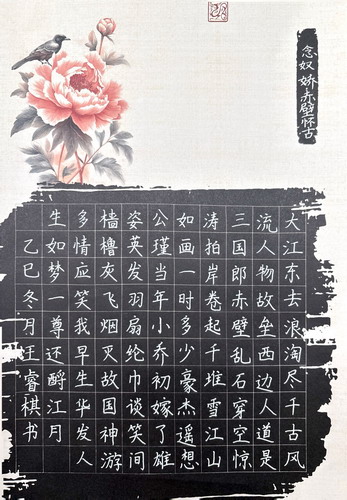 念奴娇赤壁怀古
大江东去浪淘尽千古风
流人物故垒西边人道是
三国郎赤壁乱石穿空惊
涛拍岸卷起千堆雪江山
如画一时多少豪杰遥想
公瑾当年小乔初嫁了雄
姿英发羽扇纶巾谈笑间
樯橹灰飞烟灭故国神游
多情应笑我早生华发人
生如梦一尊还酹江月
乙巳冬月王睿棋书